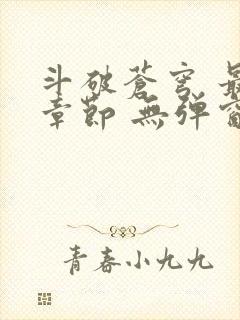 斗破蒼穹 最
章節 無彈窗
青春小九九